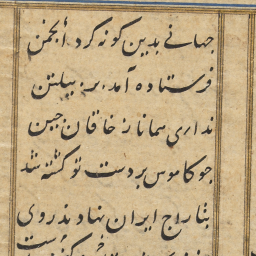 جهانے بدین کونه کرد أنجمن
فرستاده آمد بر پیلتن
نداری همانا ز خاقان چین
چو کاموس بر دست تو کشته شد
بتاراج ایران نهاد ند روی